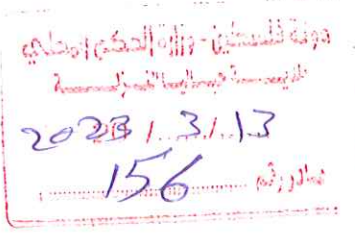 دولة فلسطين - وزارة الحكم المحلي
2023 / 3 / 13
صادر رقم 156